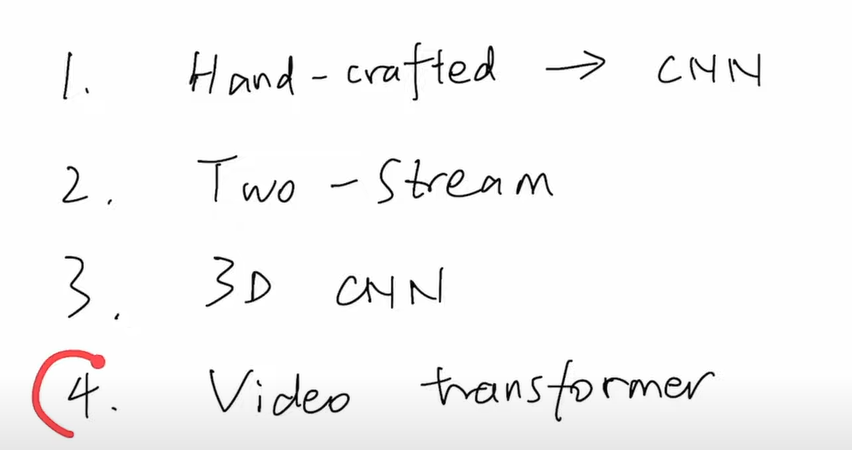 1. Hand-crafted → CNN
2. Two-Stream
3. 3D CNN
4. Video transformer